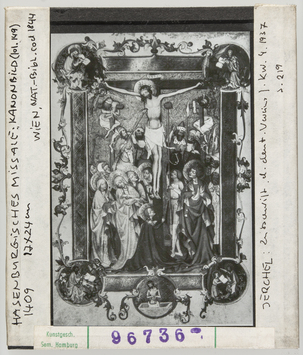 HASENBURGISCHES MISSALE: KANONBILD (fol. 149)
WIEN, NAT.-Bibl. cod 1844
1409 17x24cm
JERCHEL: Zeitschrift d. deut. Vereins f. KW 4. 1937
S. 219
Kunstgesch.
Sem. Hamburg
96736